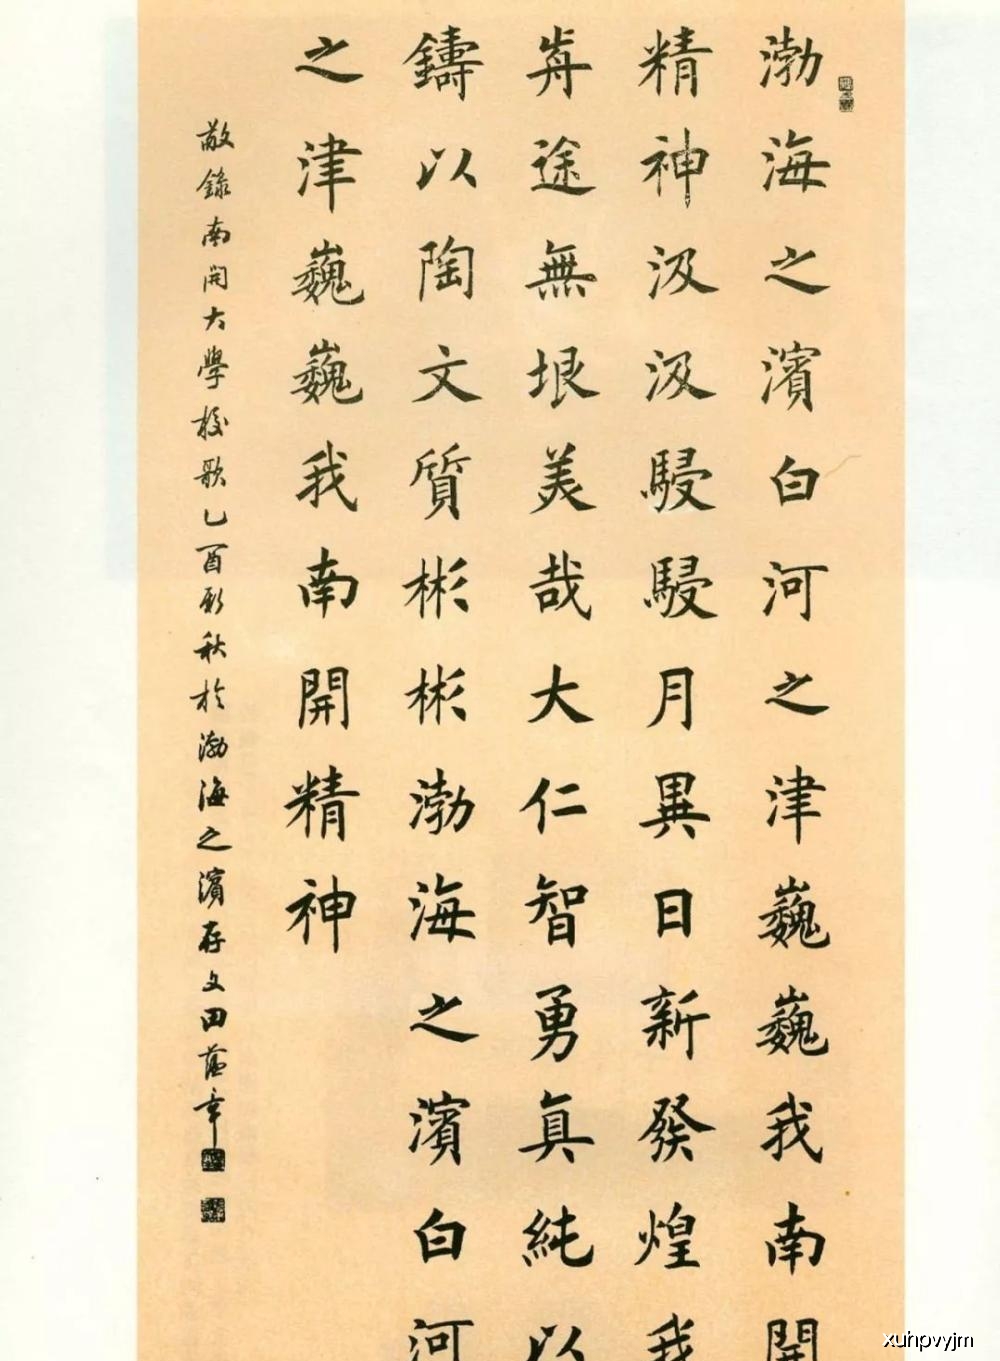 渤海之濱白河之津巍巍我南開
精神汲汲駸駸月異日新發煌我
歬途無垠美哉大仁智勇真純以
鑄以陶文質彬彬渤海之濱白河
之津巍巍我南開精神
敬錄南開大學校歌乙酉秋於渤海之濱存文田蘊章
xuhpvyjm